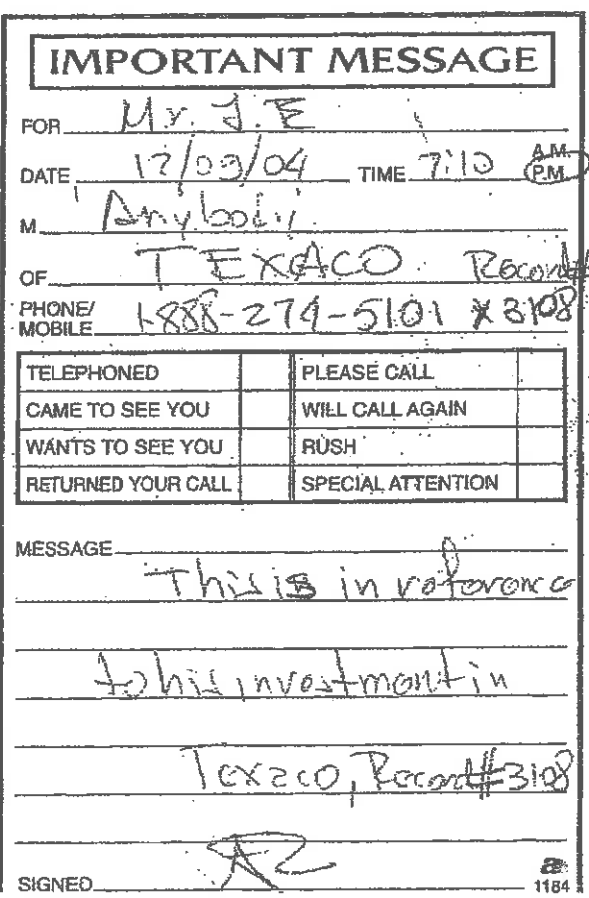 IMPORTANT MESSAGE
FOR Mr. J.E
DATE 12/03/04 TIME 7:10 A.M. P.M.
M Anybody
OF TEXACO Record#
PHONE/MOBILE 1-888-274-5101 x3108
TELEPHONED PLEASE CALL
CAME TO SEE YOU WILL CALL AGAIN
WANTS TO SEE YOU RUSH
RETURNED YOUR CALL SPECIAL ATTENTION
MESSAGE
This is in reference
to his investment in
Texaco, Record#3108
SIGNED
1184